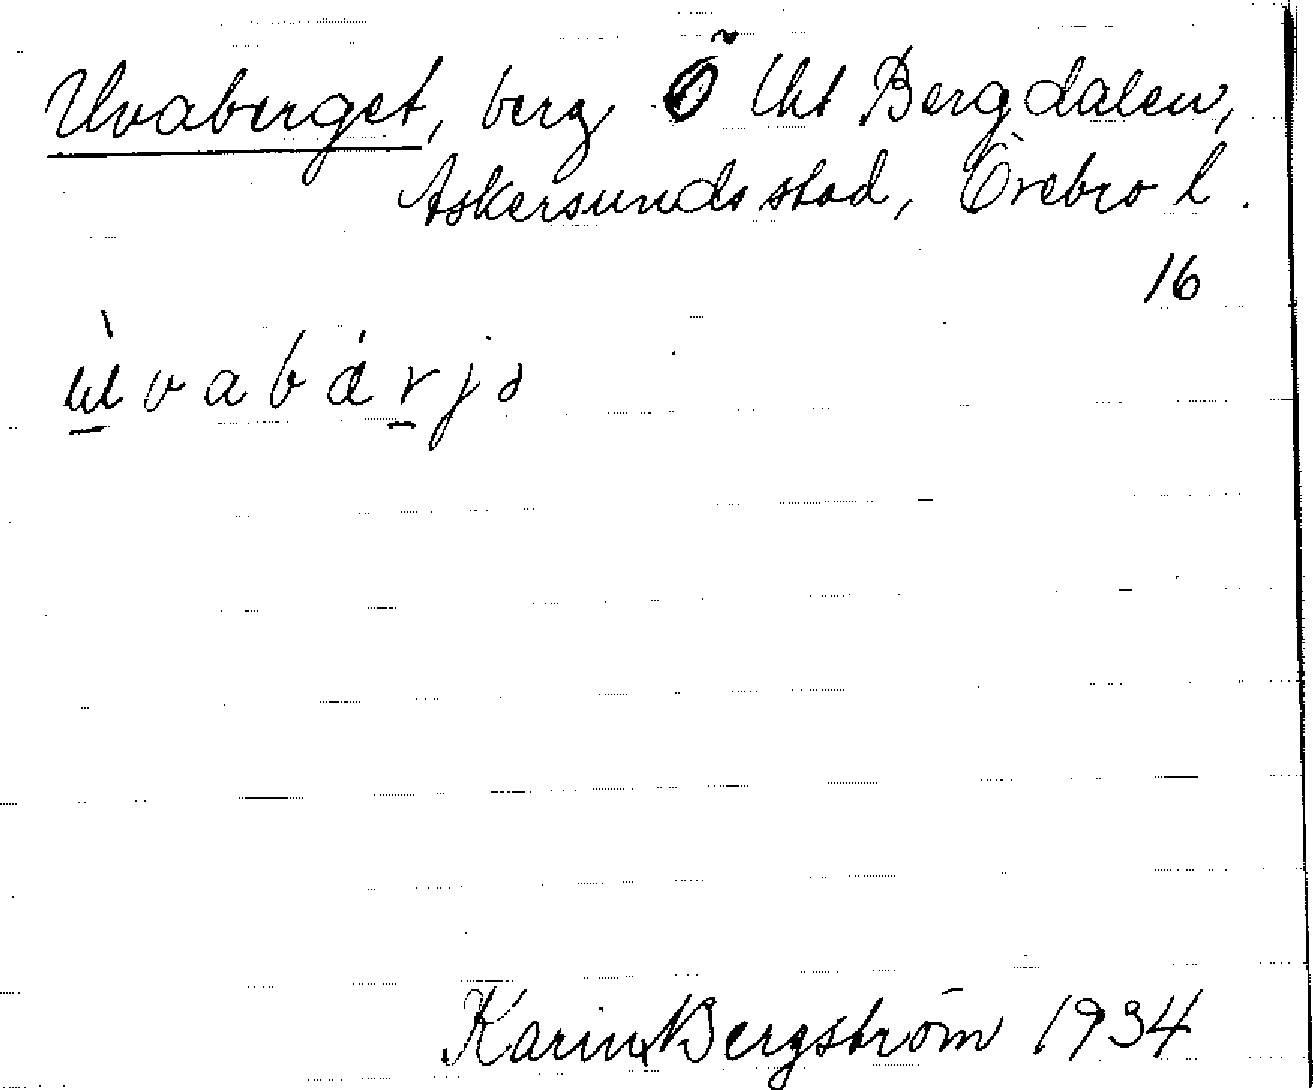 Uvaberget, berg Ö Uht Bergdalen,
Askersunds stad, Örebro l.
16
ùvabárjə
Karin Bergström 1934